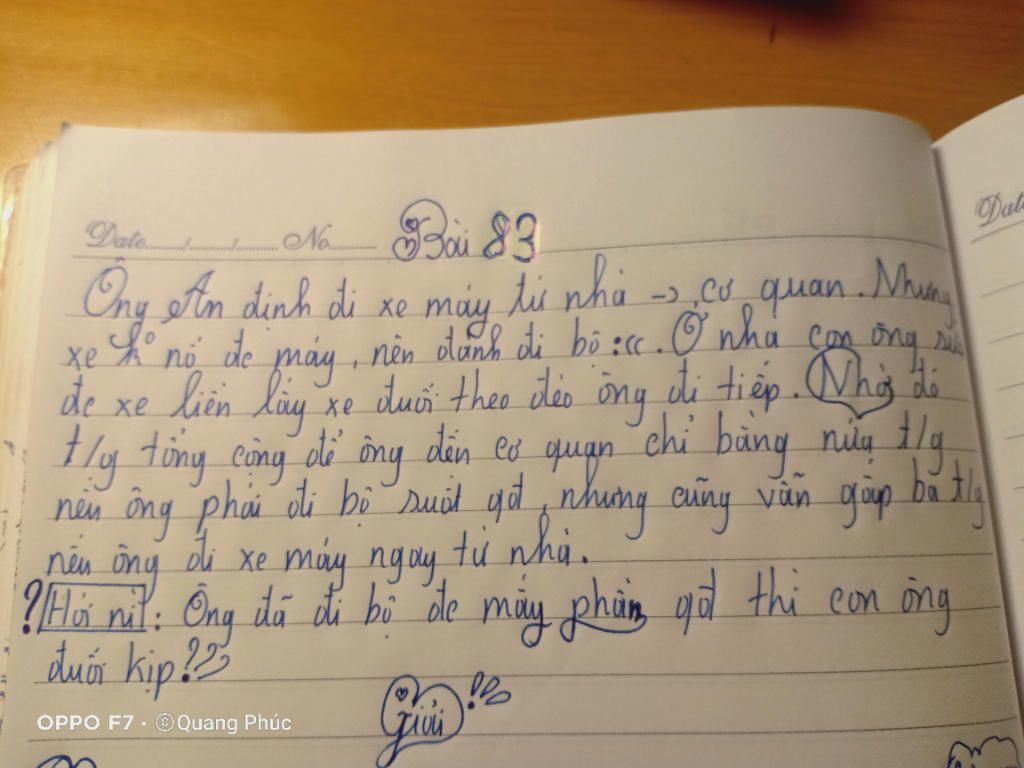 Date....../....../...... No.......... Bài 83
Ông An định đi xe máy từ nhà → cơ quan. Nhưng
xe k° nổ đc máy, nên đành đi bộ :((. Ở nhà con ông sửa
đc xe liền lấy xe đuổi theo đèo ông đi tiếp. Nhờ đó
t/g tổng cộng để ông đến cơ quan chỉ bằng nửa t/g
nếu ông phải đi bộ suốt qđ, nhưng cũng vẫn gấp ba t/g
nếu ông đi xe máy ngay từ nhà.
? Hỏi nè: Ông đã đi bộ đc mấy phần qđ thì con ông
đuổi kịp???
Giải
OPPO F7 · ©Quang Phúc